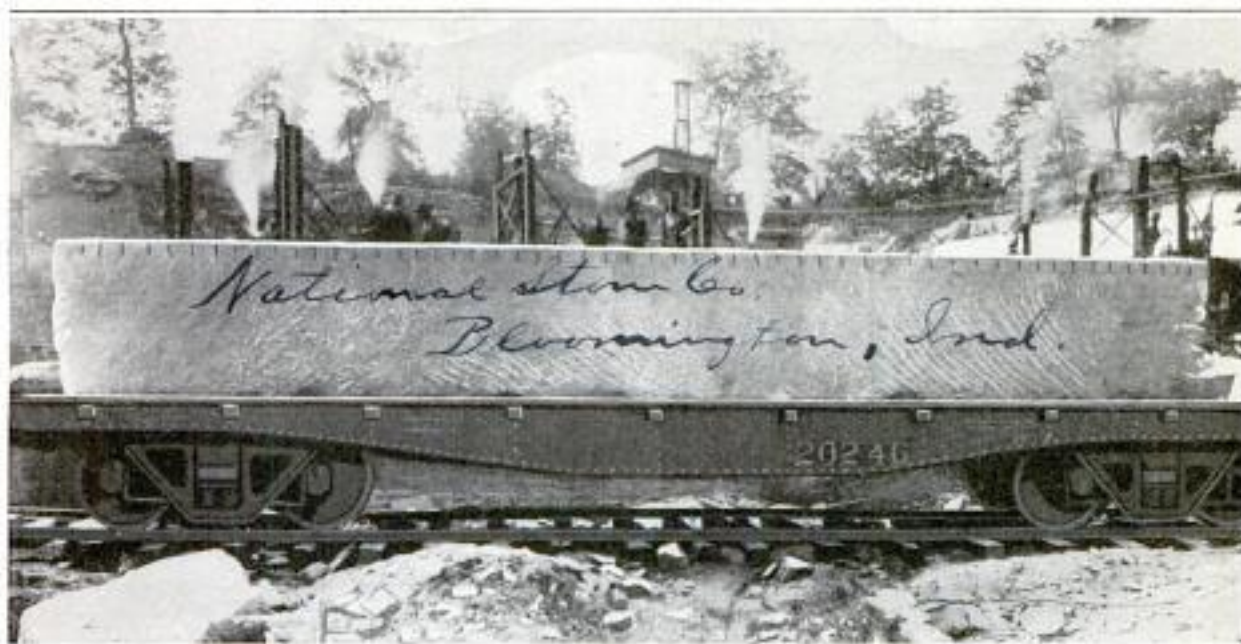 National Stone Co.
Bloomington, Ind.
20246